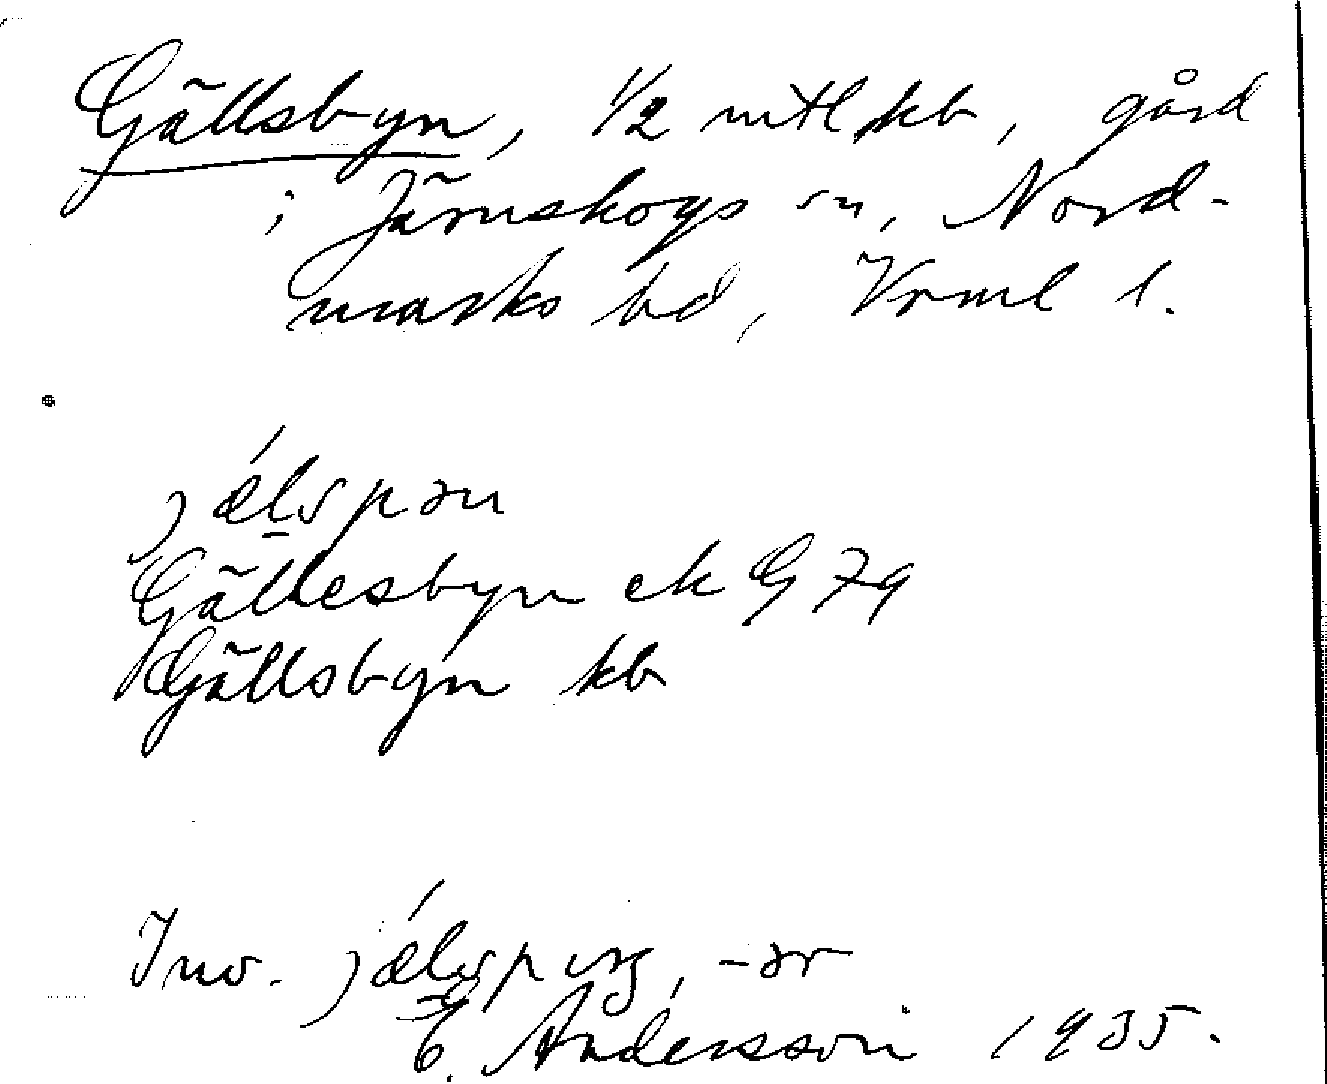 Gällsbyn, 1/2 mtl kb, gård
i Järnskogs sn, Nord-
marks hd, Vrml l.
jælspən
Gällesbyn ek G 79
Gällsbyn kb
Inv. jælspiŋ, -ər
E. Andersson 1935.